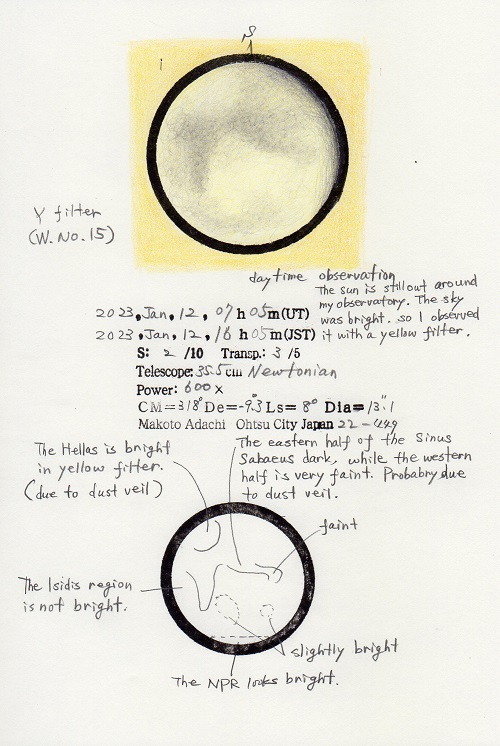 S
Y filter
(W. No. 15)
daytime observation
The sun is still out around
my observatory. The sky
was bright. so I observed
it with a yellow filter.
2023, Jan, 12, 07 h 05m(UT)
2023, Jan, 12, 16 h 05m(JST)
S: 2 /10 Transp.: 3 /5
Telescope: 35.5cm Newtonian
Power: 600 x
CM=318° De=-9.°3 Ls= 8° Dia=13."1
Makoto Adachi Ohtsu City Japan 22-449
The Hellas is bright
in yellow filter.
(due to dust veil)
The eastern half of the Sinus
Sabaeus dark, while the western
half is very faint. Probabry due
to dust veil.
faint
The Isidis region
is not bright.
slightly bright
The NPR looks bright.